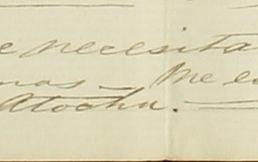 e necesita
mas — Me e
Atocha.